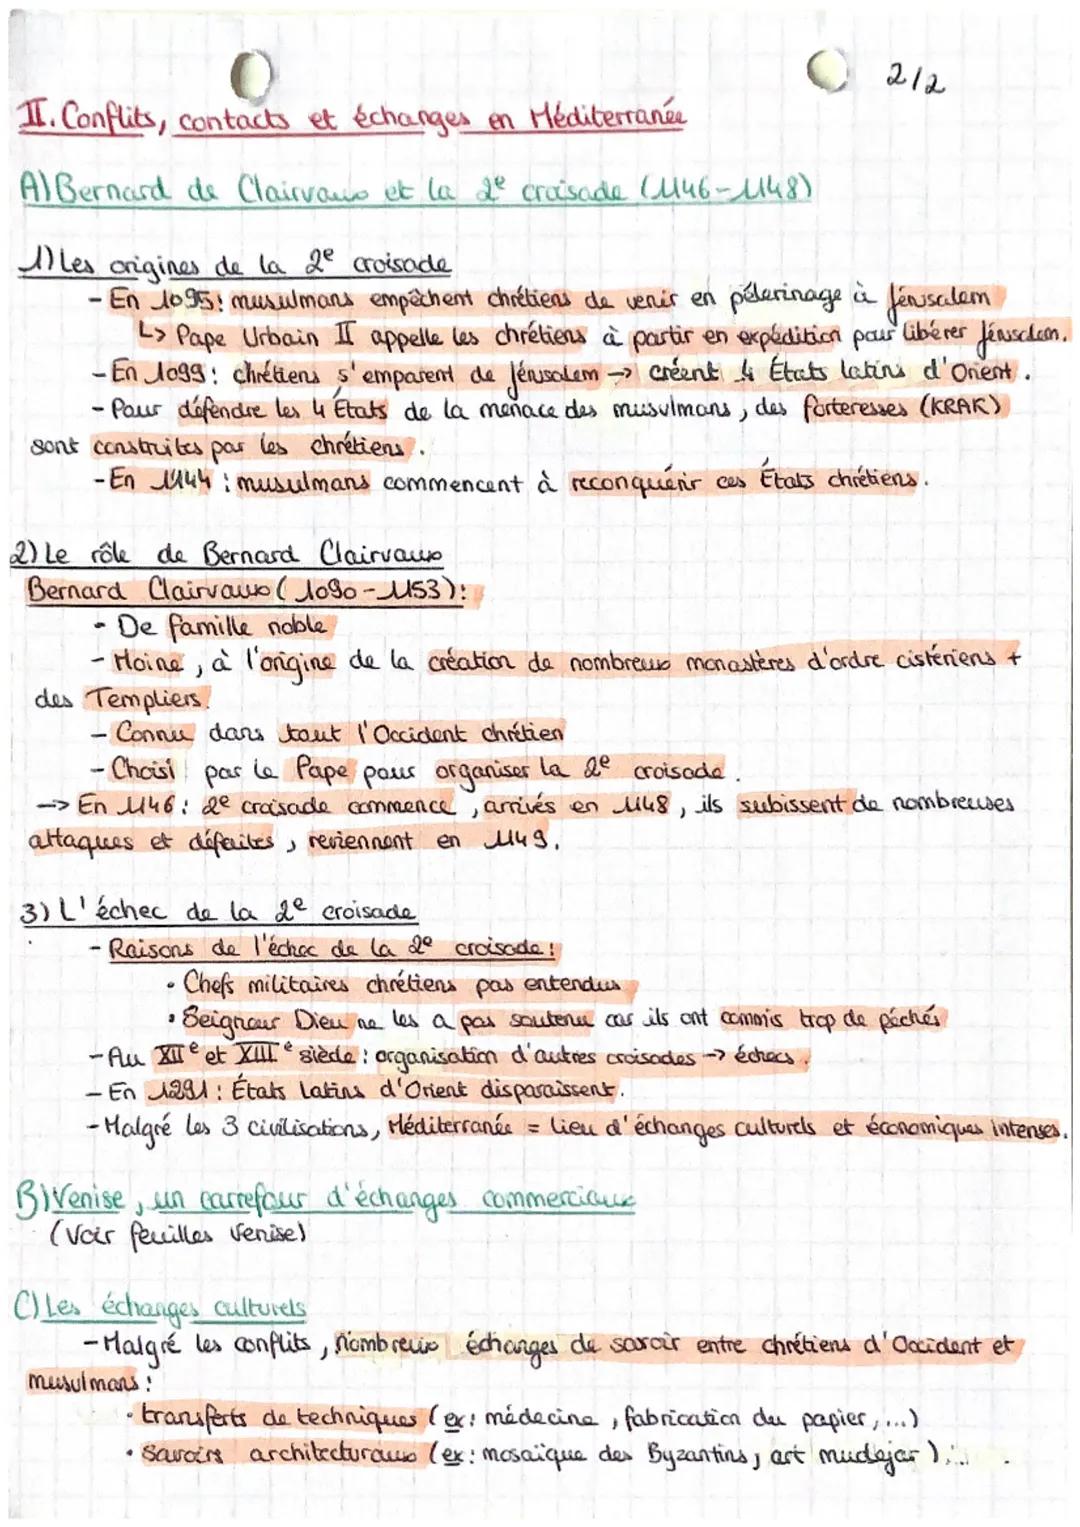 2/2
II. Conflits, contacts et échanges en Méditerranée
A) Bernard de Clairvaux et la 2e croisade (1146-1148)
1) Les origines de la 2e croisade
- En 1095: musulmans empêchent chrétiens de venir en pélerinage à Jérusalem
↳ Pape Urbain II appelle les chrétiens à partir en expédition pour libérer Jérusalem.
- En 1099: chrétiens s'emparent de Jérusalem → créent 4 États latins d'Orient.
- Pour défendre les 4 États de la menace des musulmans, des forteresses (KRAK)
sont construites par les chrétiens.
- En 1144 : musulmans commencent à reconquérir ces États chrétiens.
2) Le rôle de Bernard Clairvaux
Bernard Clairvaux (1090-1153):
- De famille noble
- Moine, à l'origine de la création de nombreux monastères d'ordre cistériens +
des Templiers.
- Connu dans tout l'Occident chrétien
- Choisi par le Pape pour organiser la 2e croisade.
→ En 1146: 2e croisade commence, arrivés en 1148, ils subissent de nombreuses
attaques et défaites, reviennent en 1149.
3) L'échec de la 2e croisade
- Raisons de l'échec de la 2e croisade:
• Chefs militaires chrétiens pas entendus
• Seigneur Dieu ne les a pas soutenu car ils ont commis trop de péchés
- Au XIIe et XIIIe siècle : organisation d'autres croisades → échecs.
- En 1291 : États latins d'Orient disparaissent.
- Malgré les 3 civilisations, Méditerranée = lieu d'échanges culturels et économiques intenses.
B) Venise, un carrefour d'échanges commerciaux
(Voir feuilles Venise)
C) Les échanges culturels
- Malgré les conflits, nombreux échanges de savoir entre chrétiens d'Occident et
musulmans :
• transferts de techniques (ex: médecine, fabrication du papier, ...)
• savoirs architecturaux (ex: mosaïque des Byzantins, art mudejar)...